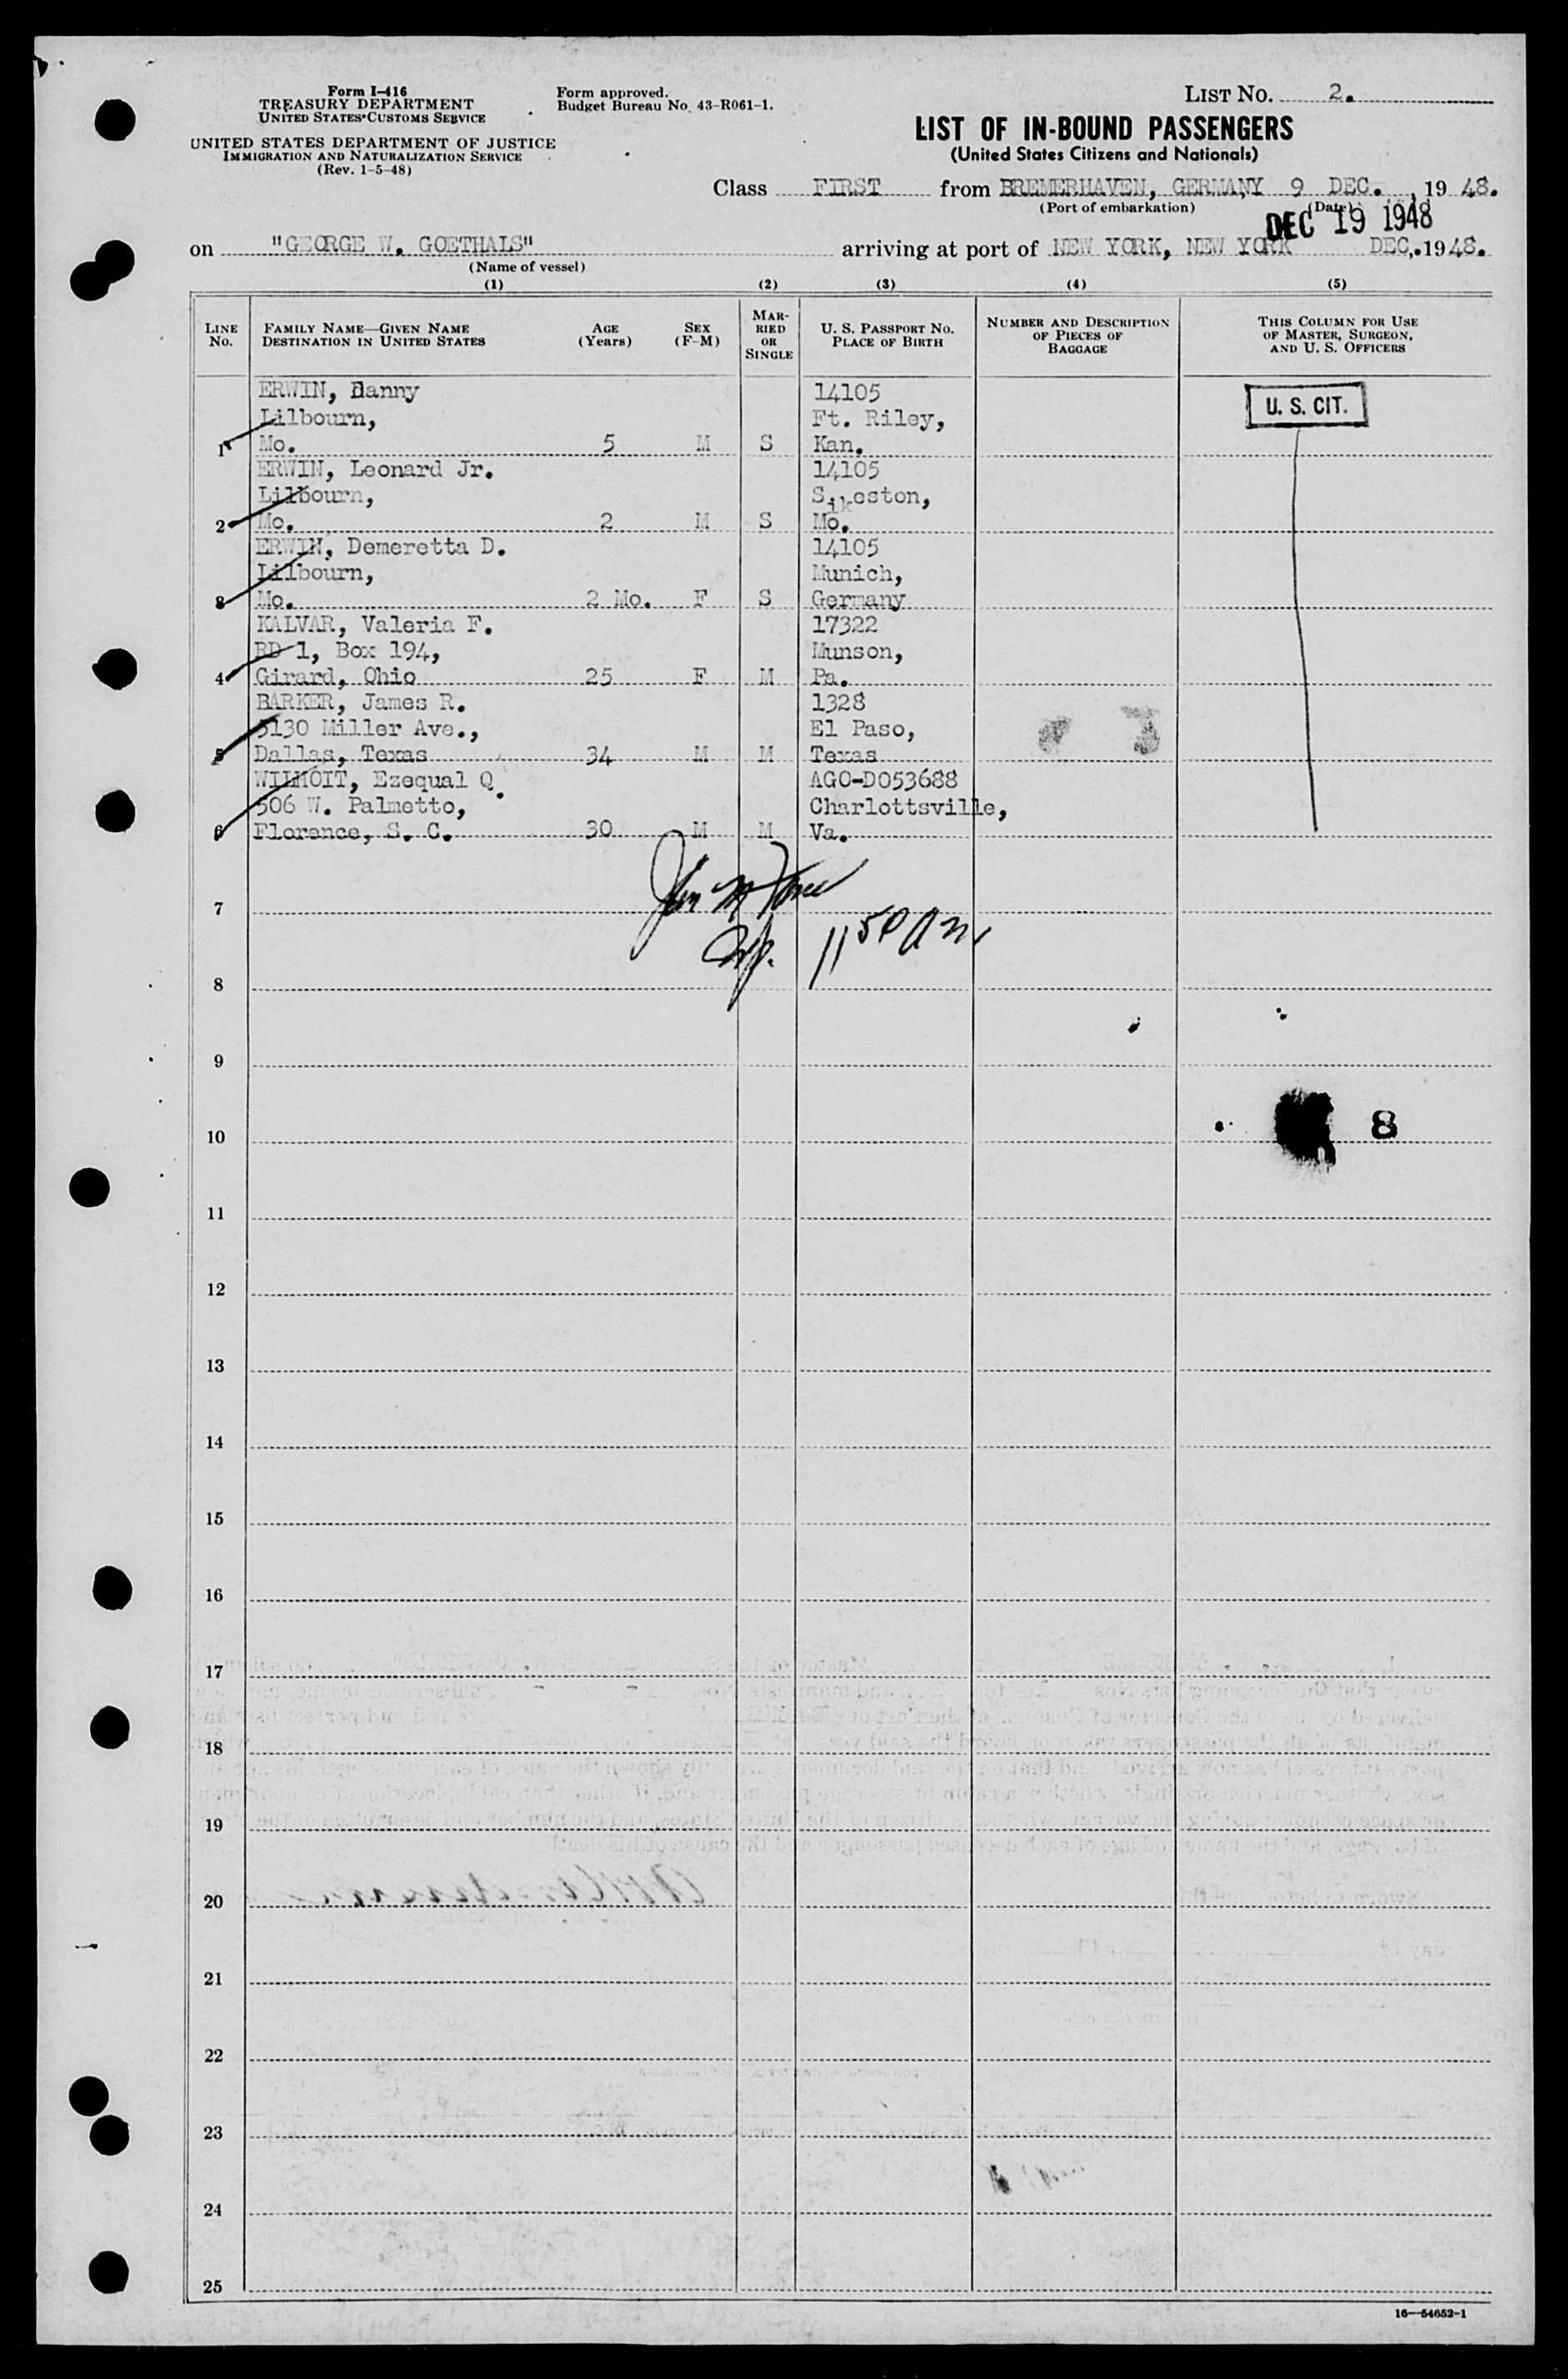 Form I-416
TREASURY DEPARTMENT
UNITED STATES CUSTOMS SERVICE
UNITED STATES DEPARTMENT OF JUSTICE
IMMIGRATION AND NATURALIZATION SERVICE
(Rev. 1-5-48)
Form approved.
Budget Bureau No. 43-R061-1.
LIST NO. 2.
LIST OF IN-BOUND PASSENGERS
(United States Citizens and Nationals)
Class FIRST from BREMERHAVEN, GERMANY 9 DEC. , 19 48.
(Port of embarkation) (Date)
DEC 19 1948
on "GEORGE W. GOETHALS" arriving at port of NEW YORK, NEW YORK DEC,.1948.
(Name of vessel)
(1) (2) (3) (4) (5)
LINE NO.
FAMILY NAME—GIVEN NAME
DESTINATION IN UNITED STATES
AGE (Years)
SEX (F-M)
MARRIED OR SINGLE
U. S. PASSPORT NO.
PLACE OF BIRTH
NUMBER AND DESCRIPTION OF PIECES OF BAGGAGE
THIS COLUMN FOR USE OF MASTER, SURGEON, AND U. S. OFFICERS
ERWIN, Danny 14105
Lilbourn, Ft. Riley,
1 Mo. 5 M S Kan.
U. S. CIT.
ERWIN, Leonard Jr. 14105
Lilbourn, Sikeston,
2 Mo. 2 M S Mo.
ERWIN, Demeretta D. 14105
Lilbourn, Munich,
3 Mo. 2 Mo. F S Germany
KALVAR, Valeria F. 17322
RD 1, Box 194, Munson,
4 Girard, Ohio 25 F M Pa.
BARKER, James R. 1328
5130 Miller Ave., El Paso,
5 Dallas, Texas 34 M M Texas
WILMOIT, Ezequal Q. AGO-D053688
506 W. Palmetto, Charlottsville,
6 Florence, S. C. 30 M M Va.
7
1150 AM
8
9
10 8
11
12
13
14
15
16
17
18
19
20
21
22
23
24
25
16—54652-1